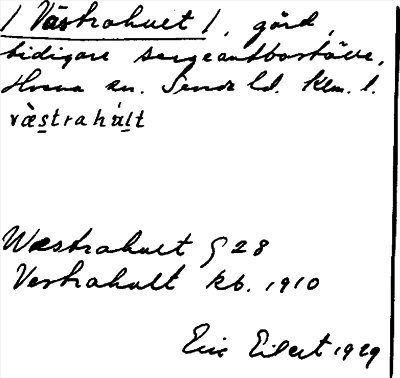 / Västrahult /, gård,
tidigare sergeantboställe,
Hovena sn. Sunde hd. Klm. l.
västrahult
Wæstrahult § 28
Vestrahult kb. 1910
Eric Eilert 1929